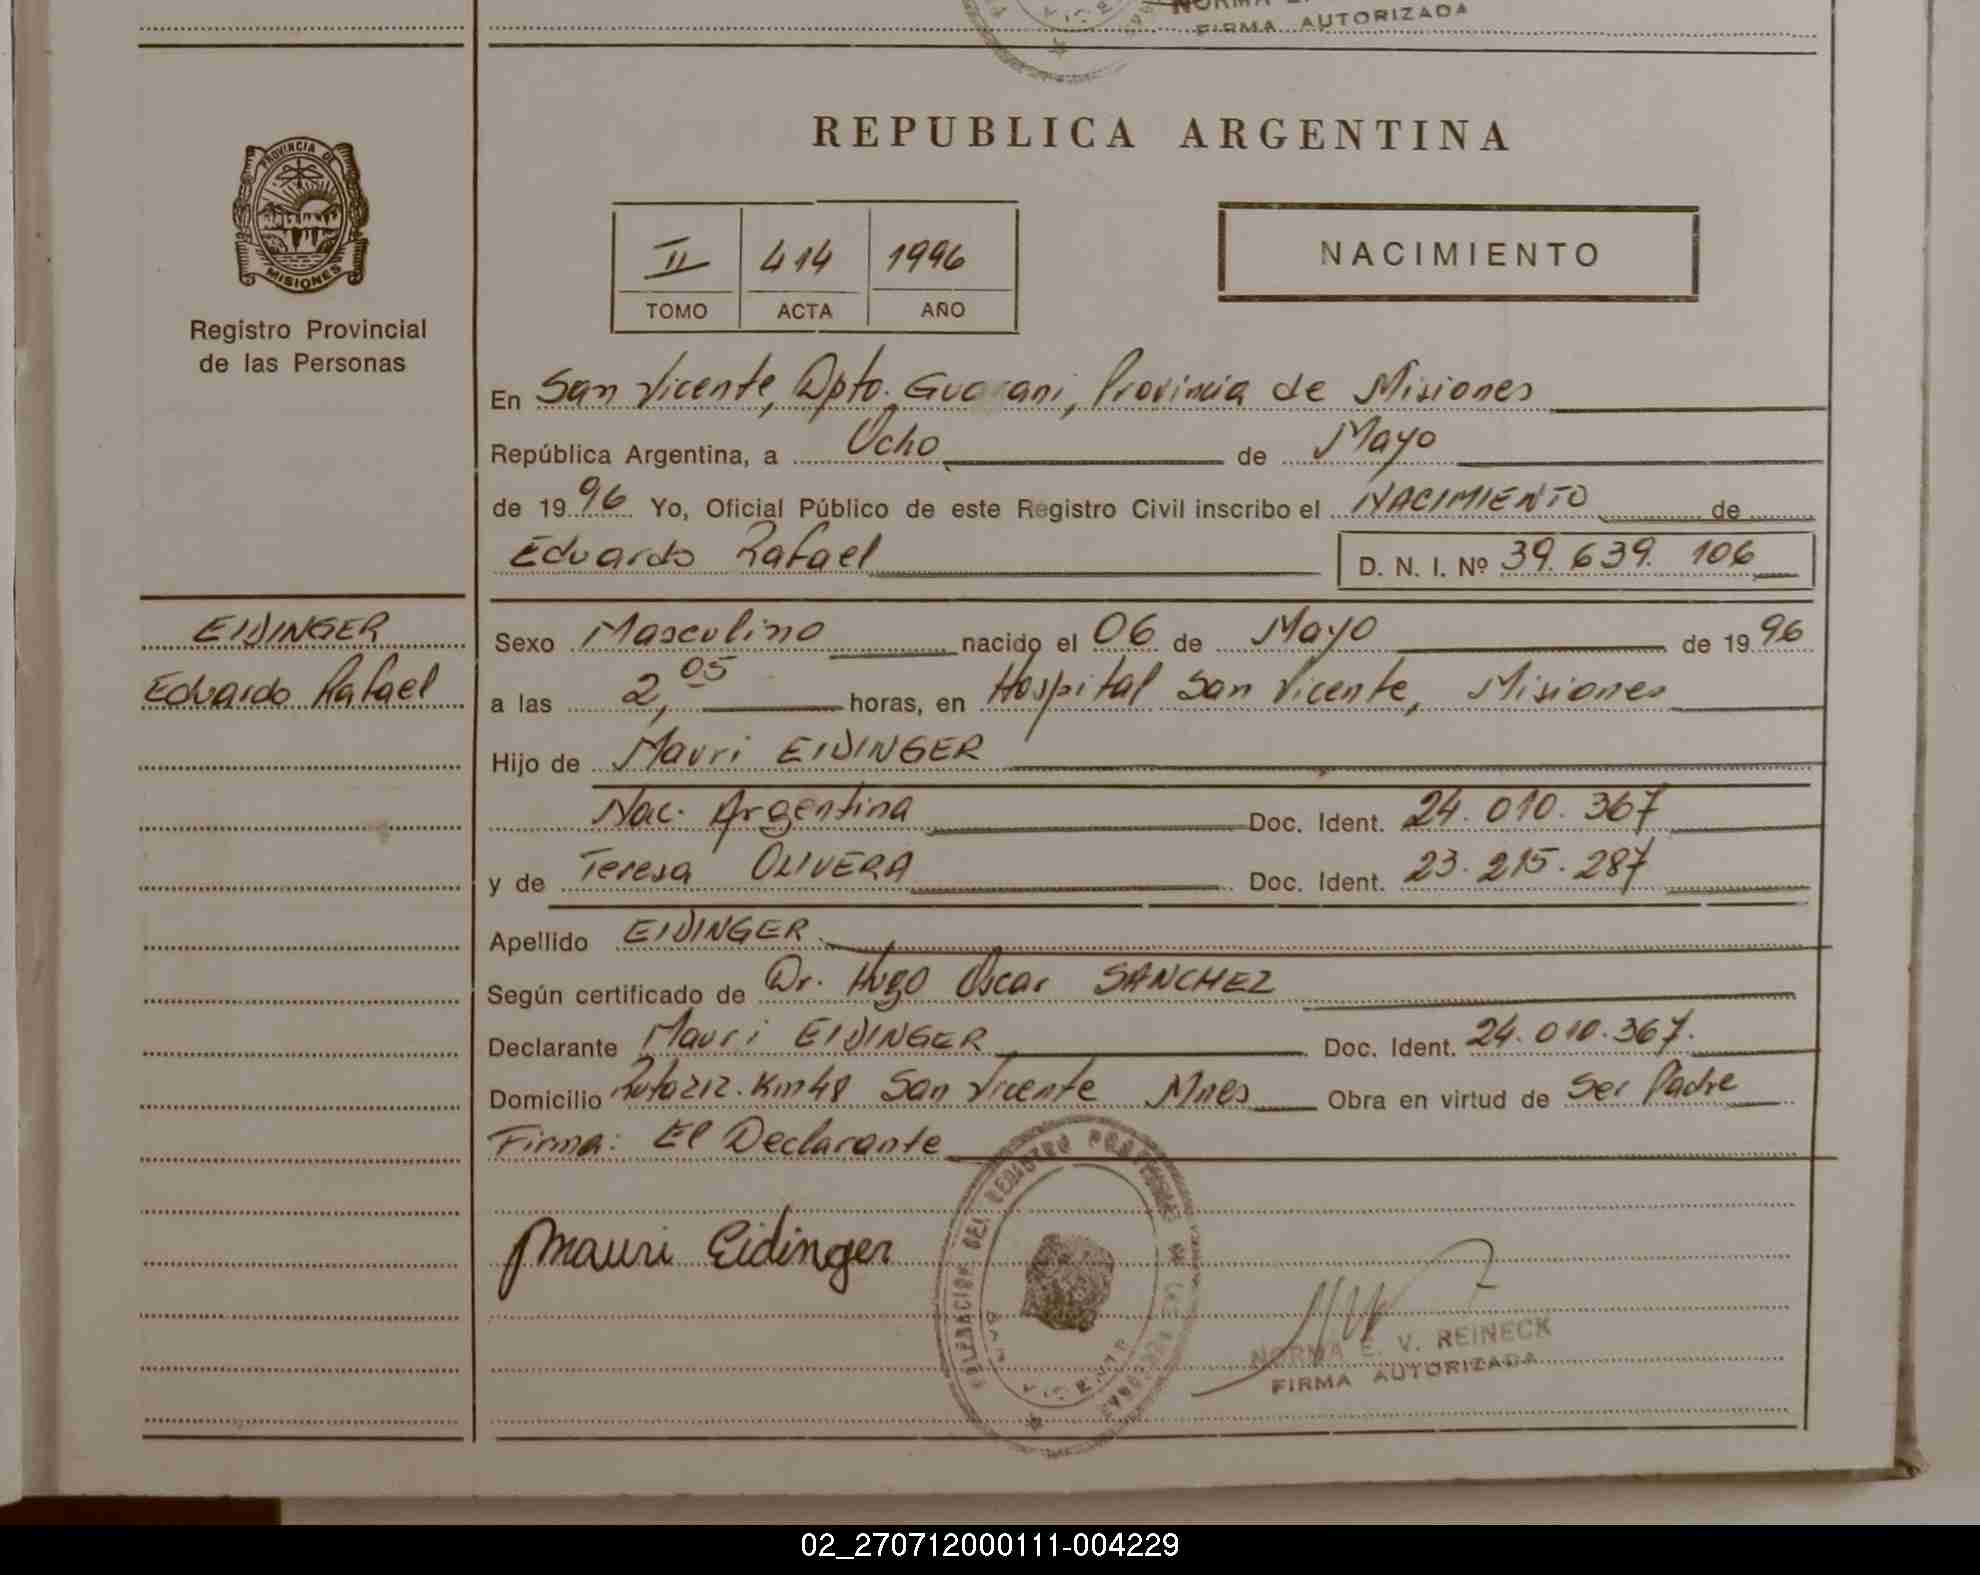 NORMA E.
FIRMA AUTORIZADA
PROVINCIA DE
MISIONES
Registro Provincial
de las Personas
REPUBLICA ARGENTINA
II 414 1996
TOMO ACTA AÑO
NACIMIENTO
En San Vicente, Dpto. Guarani, Provincia de Misiones
República Argentina, a Ocho de Mayo
de 1996 Yo, Oficial Público de este Registro Civil inscribo el NACIMIENTO de
Eduardo Rafael D. N. I. Nº 39.639.106
EIDINGER
Eduardo Rafael
Sexo Masculino nacido el 06 de Mayo de 1996
a las 2,05 horas, en Hospital San Vicente, Misiones
Hijo de Mauri EIDINGER
Nac. Argentina Doc. Ident. 24.010.367
y de Teresa OLIVERA Doc. Ident. 23.215.287
Apellido EIDINGER
Según certificado de Dr. Hugo Oscar SANCHEZ
Declarante Mauri EIDINGER Doc. Ident. 24.010.367.
Domicilio Ruta 212. Km 48 San Vicente Mnes Obra en virtud de Ser Padre
Firma: El Declarante
Mauri Eidinger
DELEGACION DEL REGISTRO
SAN VICENTE
NORMA E. V. REINECK
FIRMA AUTORIZADA
02_270712000111-004229